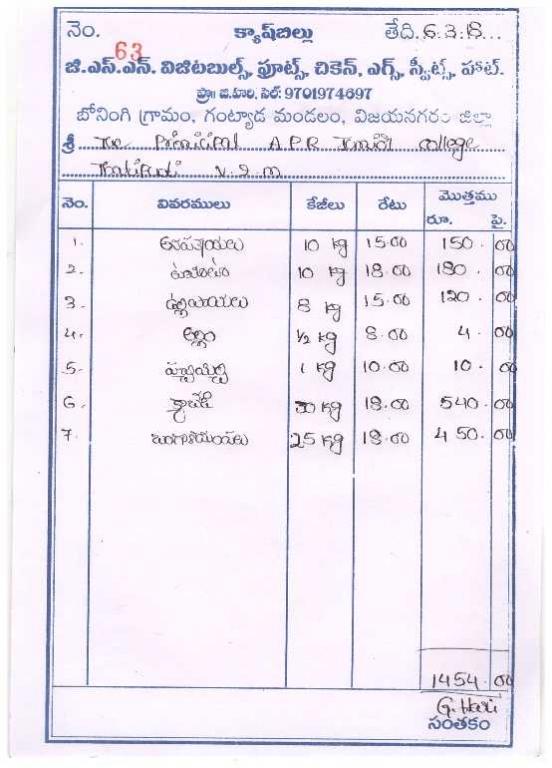 నెం. 63 క్యాష్‌బిల్లు తేది.6.3.18...
జి.ఎస్.ఎన్. విజిటబుల్స్, ఫ్రూట్స్, చికెన్, ఎగ్స్, స్వీట్స్, హాట్.
ప్రొ॥ జి.హరి, సెల్: 9701974697
బోనింగి గ్రామం, గంట్యాడ మండలం, విజయనగరం జిల్లా
శ్రీ The Principal A.P.R Junior College
V.Z.M
నెం. వివరములు కేజీలు రేటు మొత్తము
రూ. పై.
1. 10 kg 15.00 150.00
2. 10 kg 18.00 180.00
3. ఉల్లిపాయలు 8 kg 15.00 120.00
4. అల్లం ½ kg 8.00 4.00
5. పచ్చిమిర్చి 1 kg 10.00 10.00
6. క్యాబేజి 30 kg 18.00 540.00
7. బంగాళదుంపలు 25 kg 18.00 450.00
1454.00
G. Hari
సంతకం